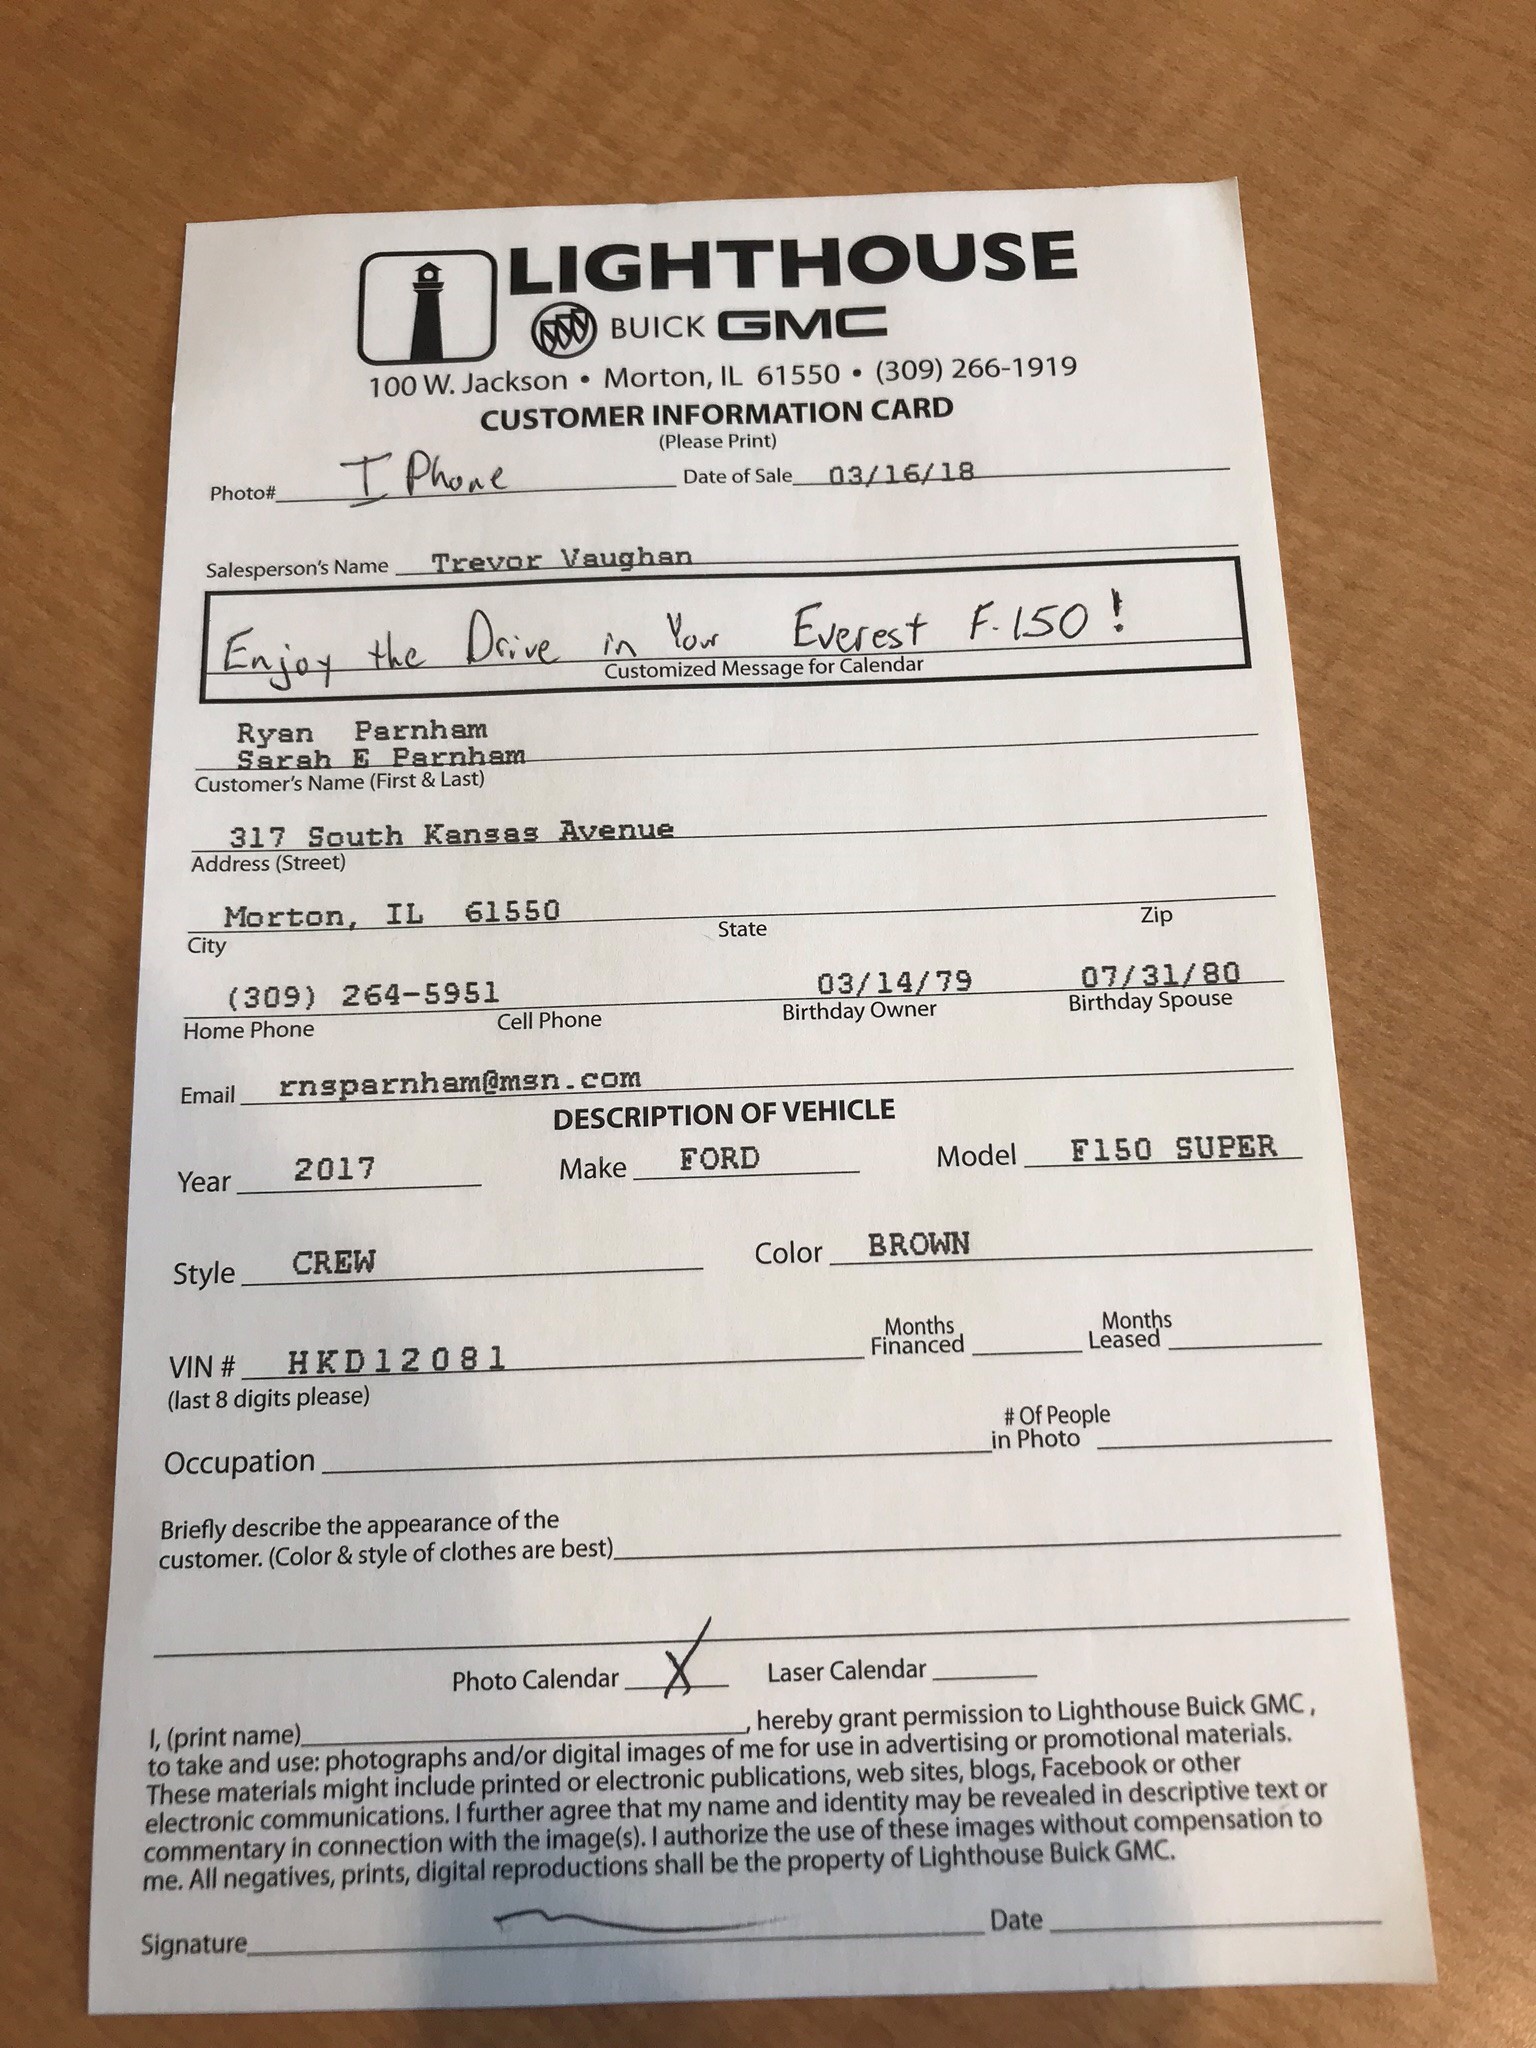 LIGHTHOUSE
BUICK GMC
100 W. Jackson • Morton, IL 61550 • (309) 266-1919
CUSTOMER INFORMATION CARD
(Please Print)
Photo# I Phone Date of Sale 03/16/18
Salesperson's Name Trevor Vaughan
Enjoy the Drive in Your Everest F-150!
Customized Message for Calendar
Ryan Parnham
Sarah E Parnham
Customer's Name (First & Last)
317 South Kansas Avenue
Address (Street)
Morton, IL 61550
City State Zip
(309) 264-5951 03/14/79 07/31/80
Home Phone Cell Phone Birthday Owner Birthday Spouse
Email rnsparnham@msn.com
DESCRIPTION OF VEHICLE
Year 2017 Make FORD Model F150 SUPER
Style CREW Color BROWN
VIN # HKD12081 Months Financed Months Leased
(last 8 digits please)
Occupation # Of People in Photo
Briefly describe the appearance of the
customer. (Color & style of clothes are best)
Photo Calendar X Laser Calendar
I, (print name), hereby grant permission to Lighthouse Buick GMC,
to take and use: photographs and/or digital images of me for use in advertising or promotional materials.
These materials might include printed or electronic publications, web sites, blogs, Facebook or other
electronic communications. I further agree that my name and identity may be revealed in descriptive text or
commentary in connection with the image(s). I authorize the use of these images without compensation to
me. All negatives, prints, digital reproductions shall be the property of Lighthouse Buick GMC.
Signature Date